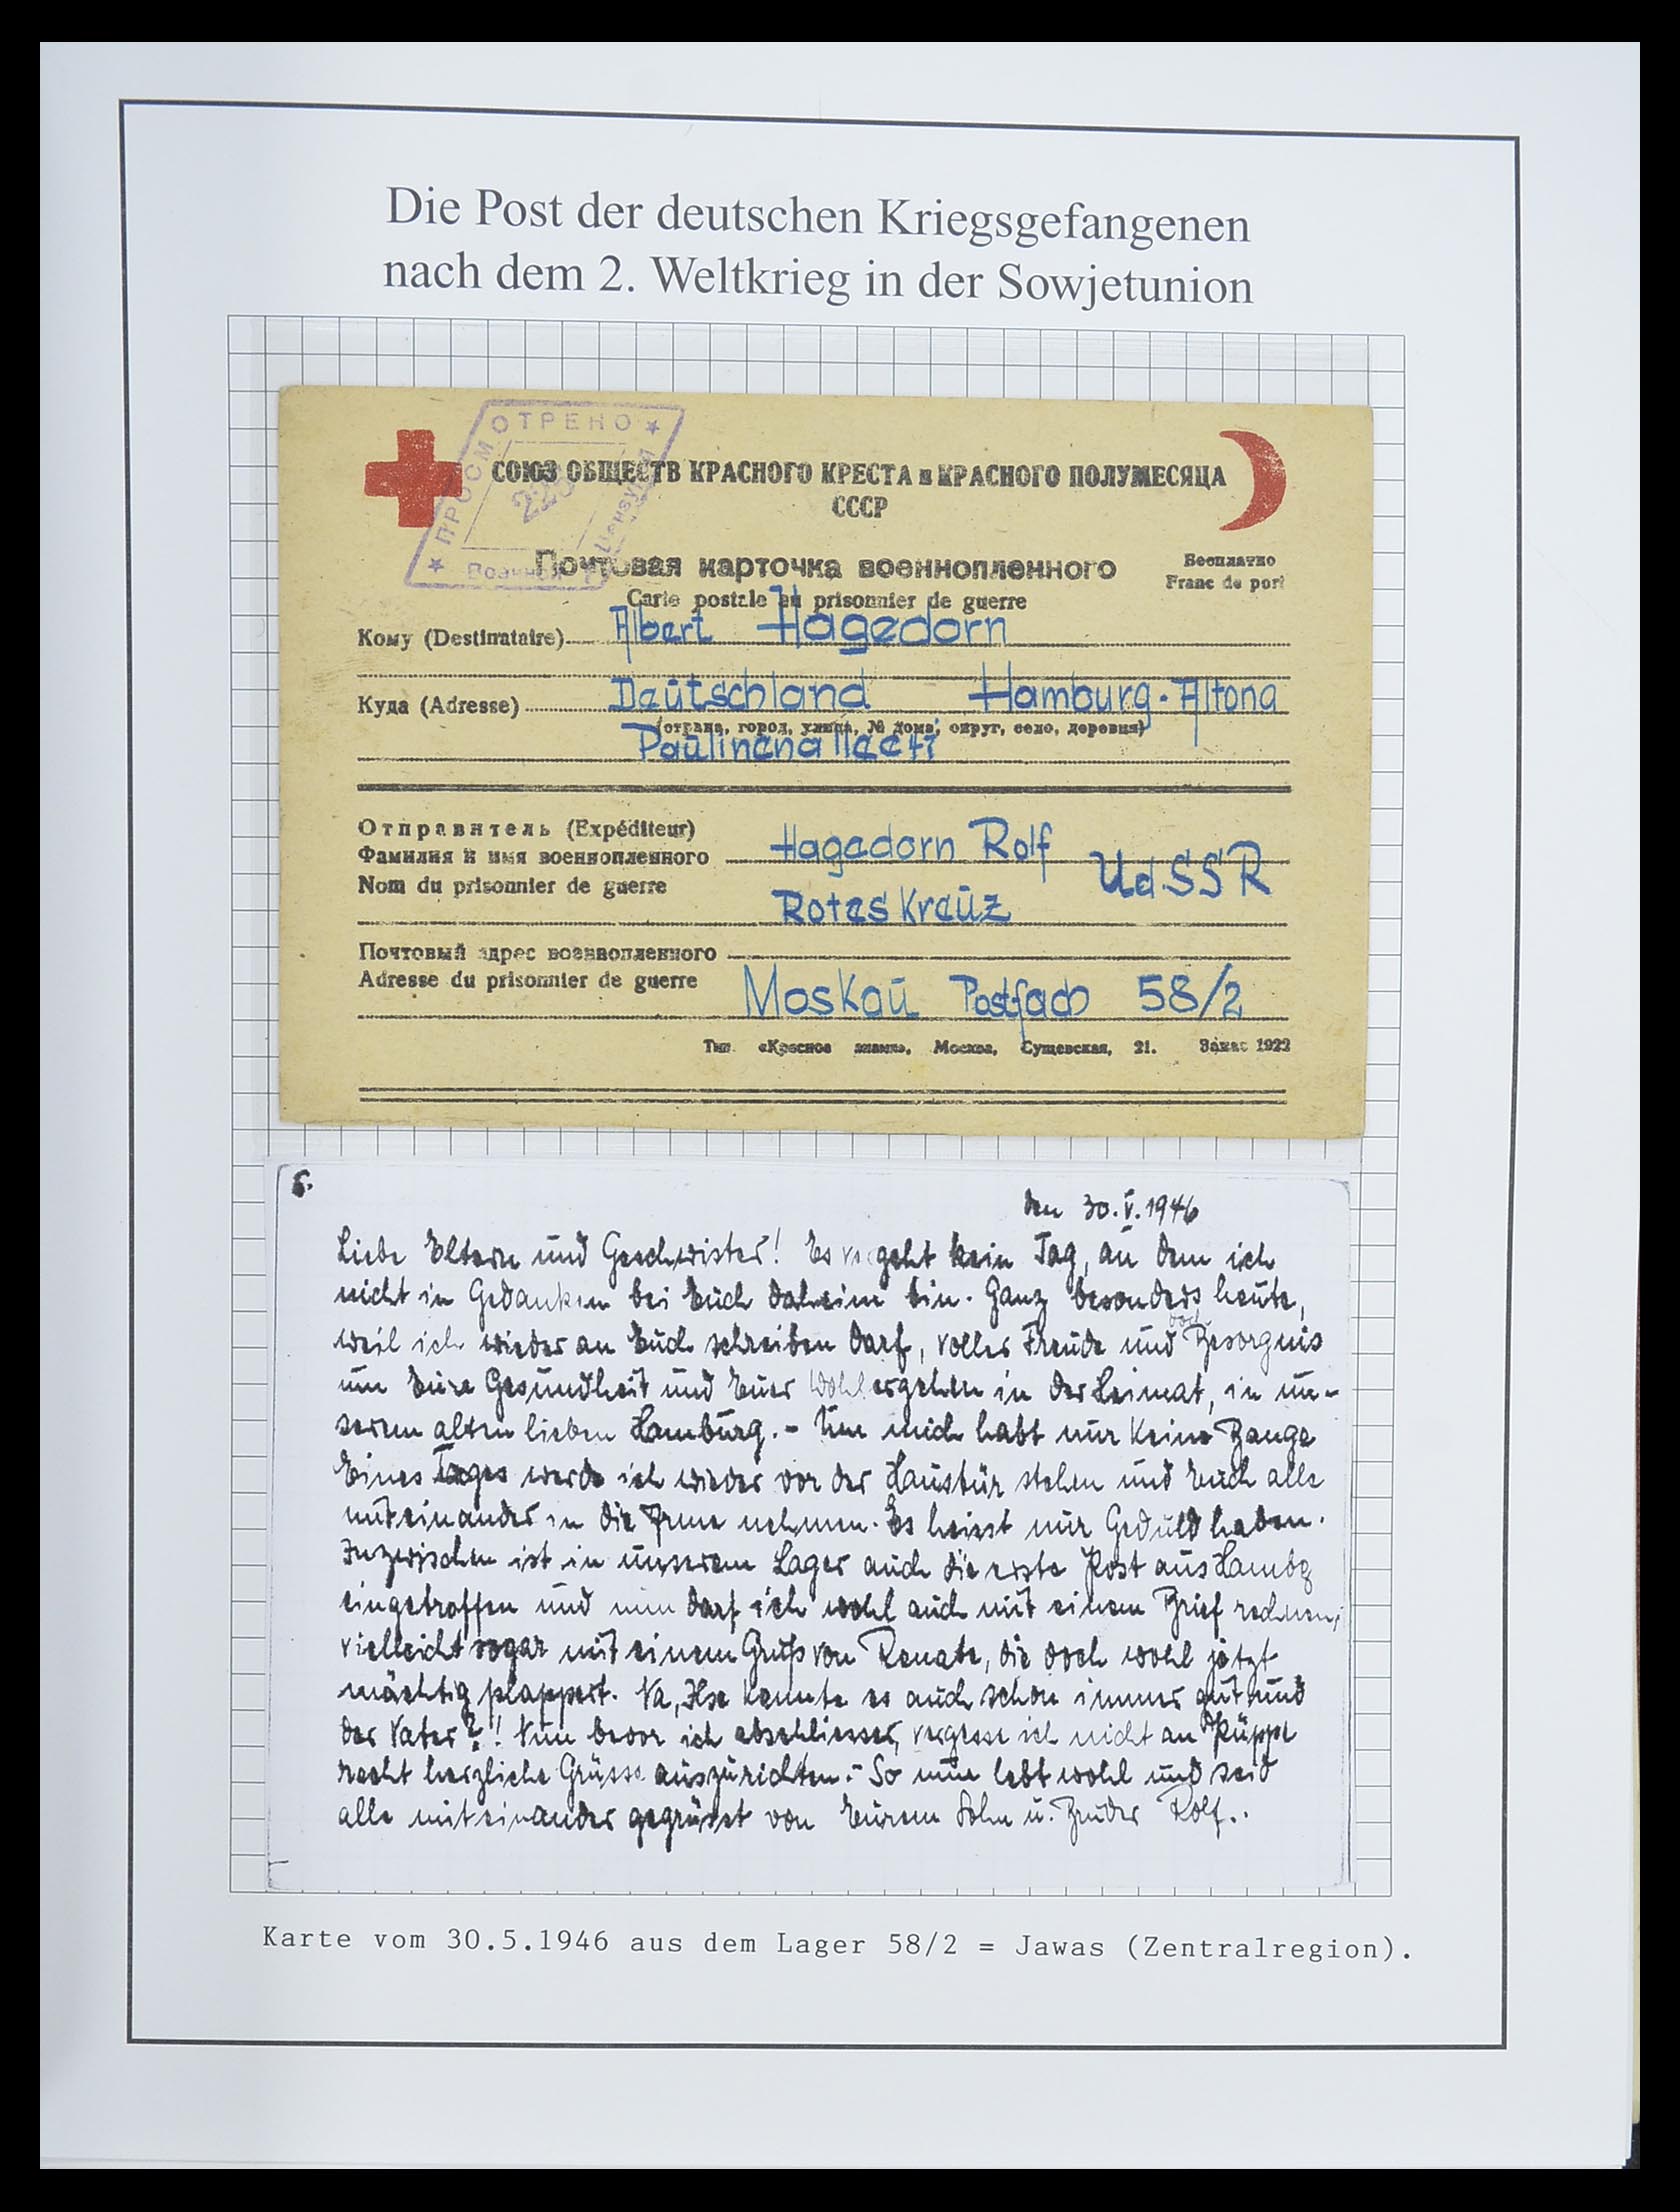 Die Post der deutschen Kriegsgefangenen
nach dem 2. Weltkrieg in der Sowjetunion
ПРОСМОТРЕНО
Военной Цензурой
СОЮЗ ОБЩЕСТВ КРАСНОГО КРЕСТА и КРАСНОГО ПОЛУМЕСЯЦА
СССР
Почтовая карточка военнопленного
Бесплатно
Franc de port
Carte postale du prisonnier de guerre
Кому (Destinataire) Albert Hagedorn
Куда (Adresse) Deutschland Hamburg-Altona
(страна, город, улица, № дома, округ, село, деревня)
Paulinenallee
Отправитель (Expéditeur)
Фамилия и имя военнопленного Hagedorn Rolf
Nom du prisonnier de guerre UdSSR
Rotes Kreuz
Почтовый адрес военнопленного
Adresse du prisonnier de guerre Moskau Postfach 58/2
Тип. «Красное знамя», Москва, Сущевская, 21. Заказ 1922
den 30.V.1946
Liebe Eltern und Geschwister! Es vergeht kein Tag, an dem ich
nicht in Gedanken bei Euch daheim bin. Ganz besonders heute,
weil ich wieder an Euch schreiben darf, voller Freude und doch Besorgnis
um Eure Gesundheit und Euer Wohlergehen in der Heimat, in un-
serem alten lieben Hamburg. - Um mich habt nur keine Bange
Eines Tages werde ich wieder vor der Haustür stehen und Euch alle
miteinander in die Arme nehmen. Es heisst nur Geduld haben.
Inzwischen ist in unserem Lager auch die erste Post aus Hambg
eingetroffen und nun darf ich wohl auch mit einem Brief rechnen,
vielleicht sogar mit einem Gruß von Renate, die doch wohl jetzt
mächtig plappert. Na, Ilse konnte es auch schon immer gut und
der Vater?! Nun bevor ich abschliesse, vergesse ich nicht an
recht herzliche Grüsse auszurichten. - So nun lebt wohl und seid
alle miteinander gegrüsst von Eurem Sohn u. Bruder Rolf.
Karte vom 30.5.1946 aus dem Lager 58/2 = Jawas (Zentralregion).